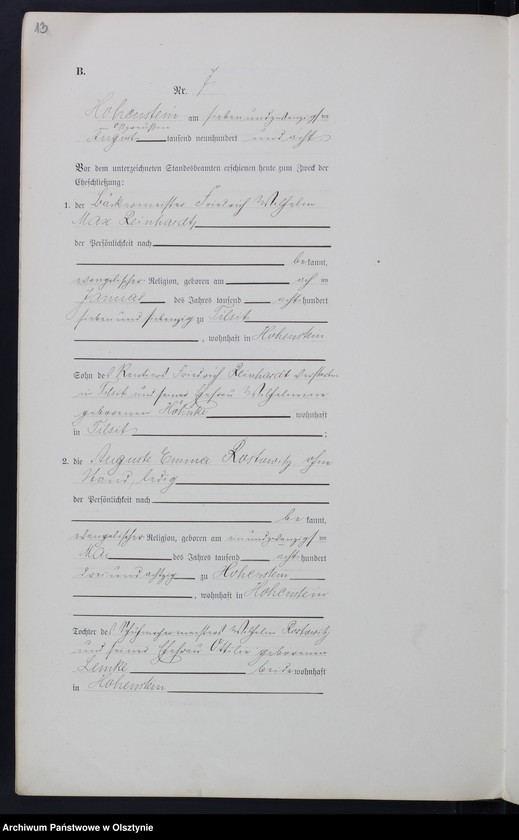 13
B.
Nr. 7
Hohenstein am siebenundzwanzigsten
Ostpreußen
August tausend neunhundert und acht
Vor dem unterzeichneten Standesbeamten erschienen heute zum Zweck der
Eheschließung:
1. der Bäckermeister Friedrich Wilhelm
Max Reinhardt,
der Persönlichkeit nach
bekannt,
evangelischer Religion, geboren am achten
Januar des Jahres tausend achthundert
siebenundsiebenzig zu Tilsit
, wohnhaft in Hohenstein
Sohn des Rentiers Friedrich Reinhardt verstorben
in Tilsit und seiner Ehefrau Wilhelmine
geborenen wohnhaft
in Tilsit ;
2. die Auguste Emma Rostowitz, ohne
Stand, ledig
der Persönlichkeit nach
bekannt,
evangelischer Religion, geboren am einundzwanzigsten
Mai des Jahres tausend achthundert
dreiundachtzig zu Hohenstein
, wohnhaft in Hohenstein
Tochter des Schuhmachermeisters Wilhelm Rostowitz
und seiner Ehefrau Ottilie geborenen
Lemke beide wohnhaft
in Hohenstein
Archiwum Państwowe w Olsztynie